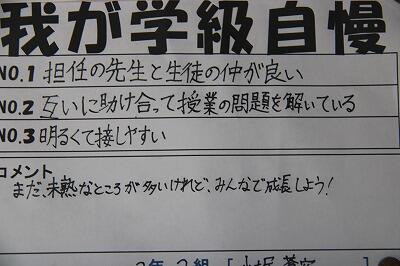 我が学級自慢
NO.1 担任の先生と生徒の仲が良い
NO.2 互いに助け合って授業の問題を解いている
NO.3 明るくて接しやすい
コメント
まだ、未熟なところが多いけれど、みんなで成長しよう!
2年 2組 [